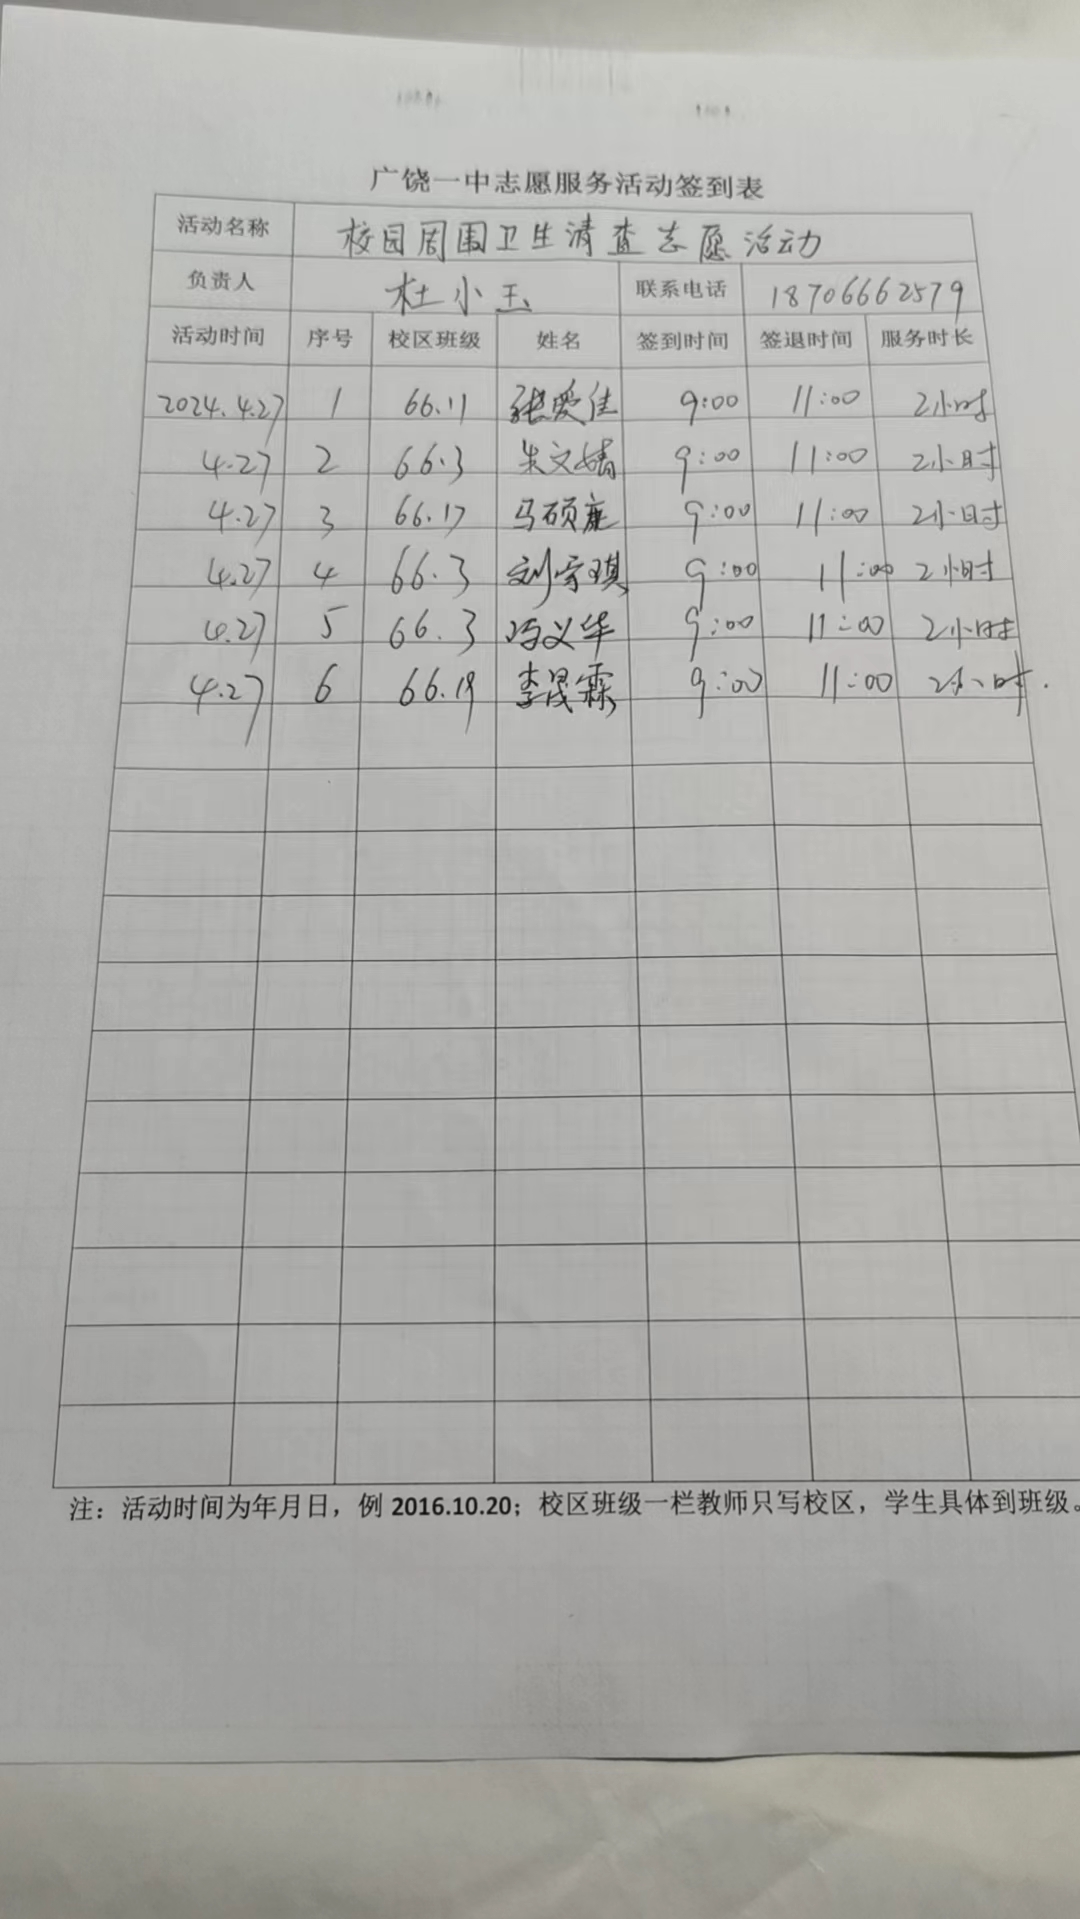 广饶一中志愿服务活动签到表
活动名称 校园周围卫生清查志愿活动
负责人 杜小玉 联系电话 18706662579
活动时间 序号 校区班级 姓名 签到时间 签退时间 服务时长
2024.4.27 1 66.11 张爱佳 9:00 11:00 2小时
4.27 2 66.3 朱文婧 9:00 11:00 2小时
4.27 3 66.17 马硕 9:00 11:00 2小时
4.27 4 66.3 刘 琪 9:00 11:00 2小时
4.27 5 66.3 冯义华 9:00 11:00 2小时
4.27 6 66.19 李晟霖 9:00 11:00 2小时.
注：活动时间为年月日，例 2016.10.20；校区班级一栏教师只写校区，学生具体到班级。